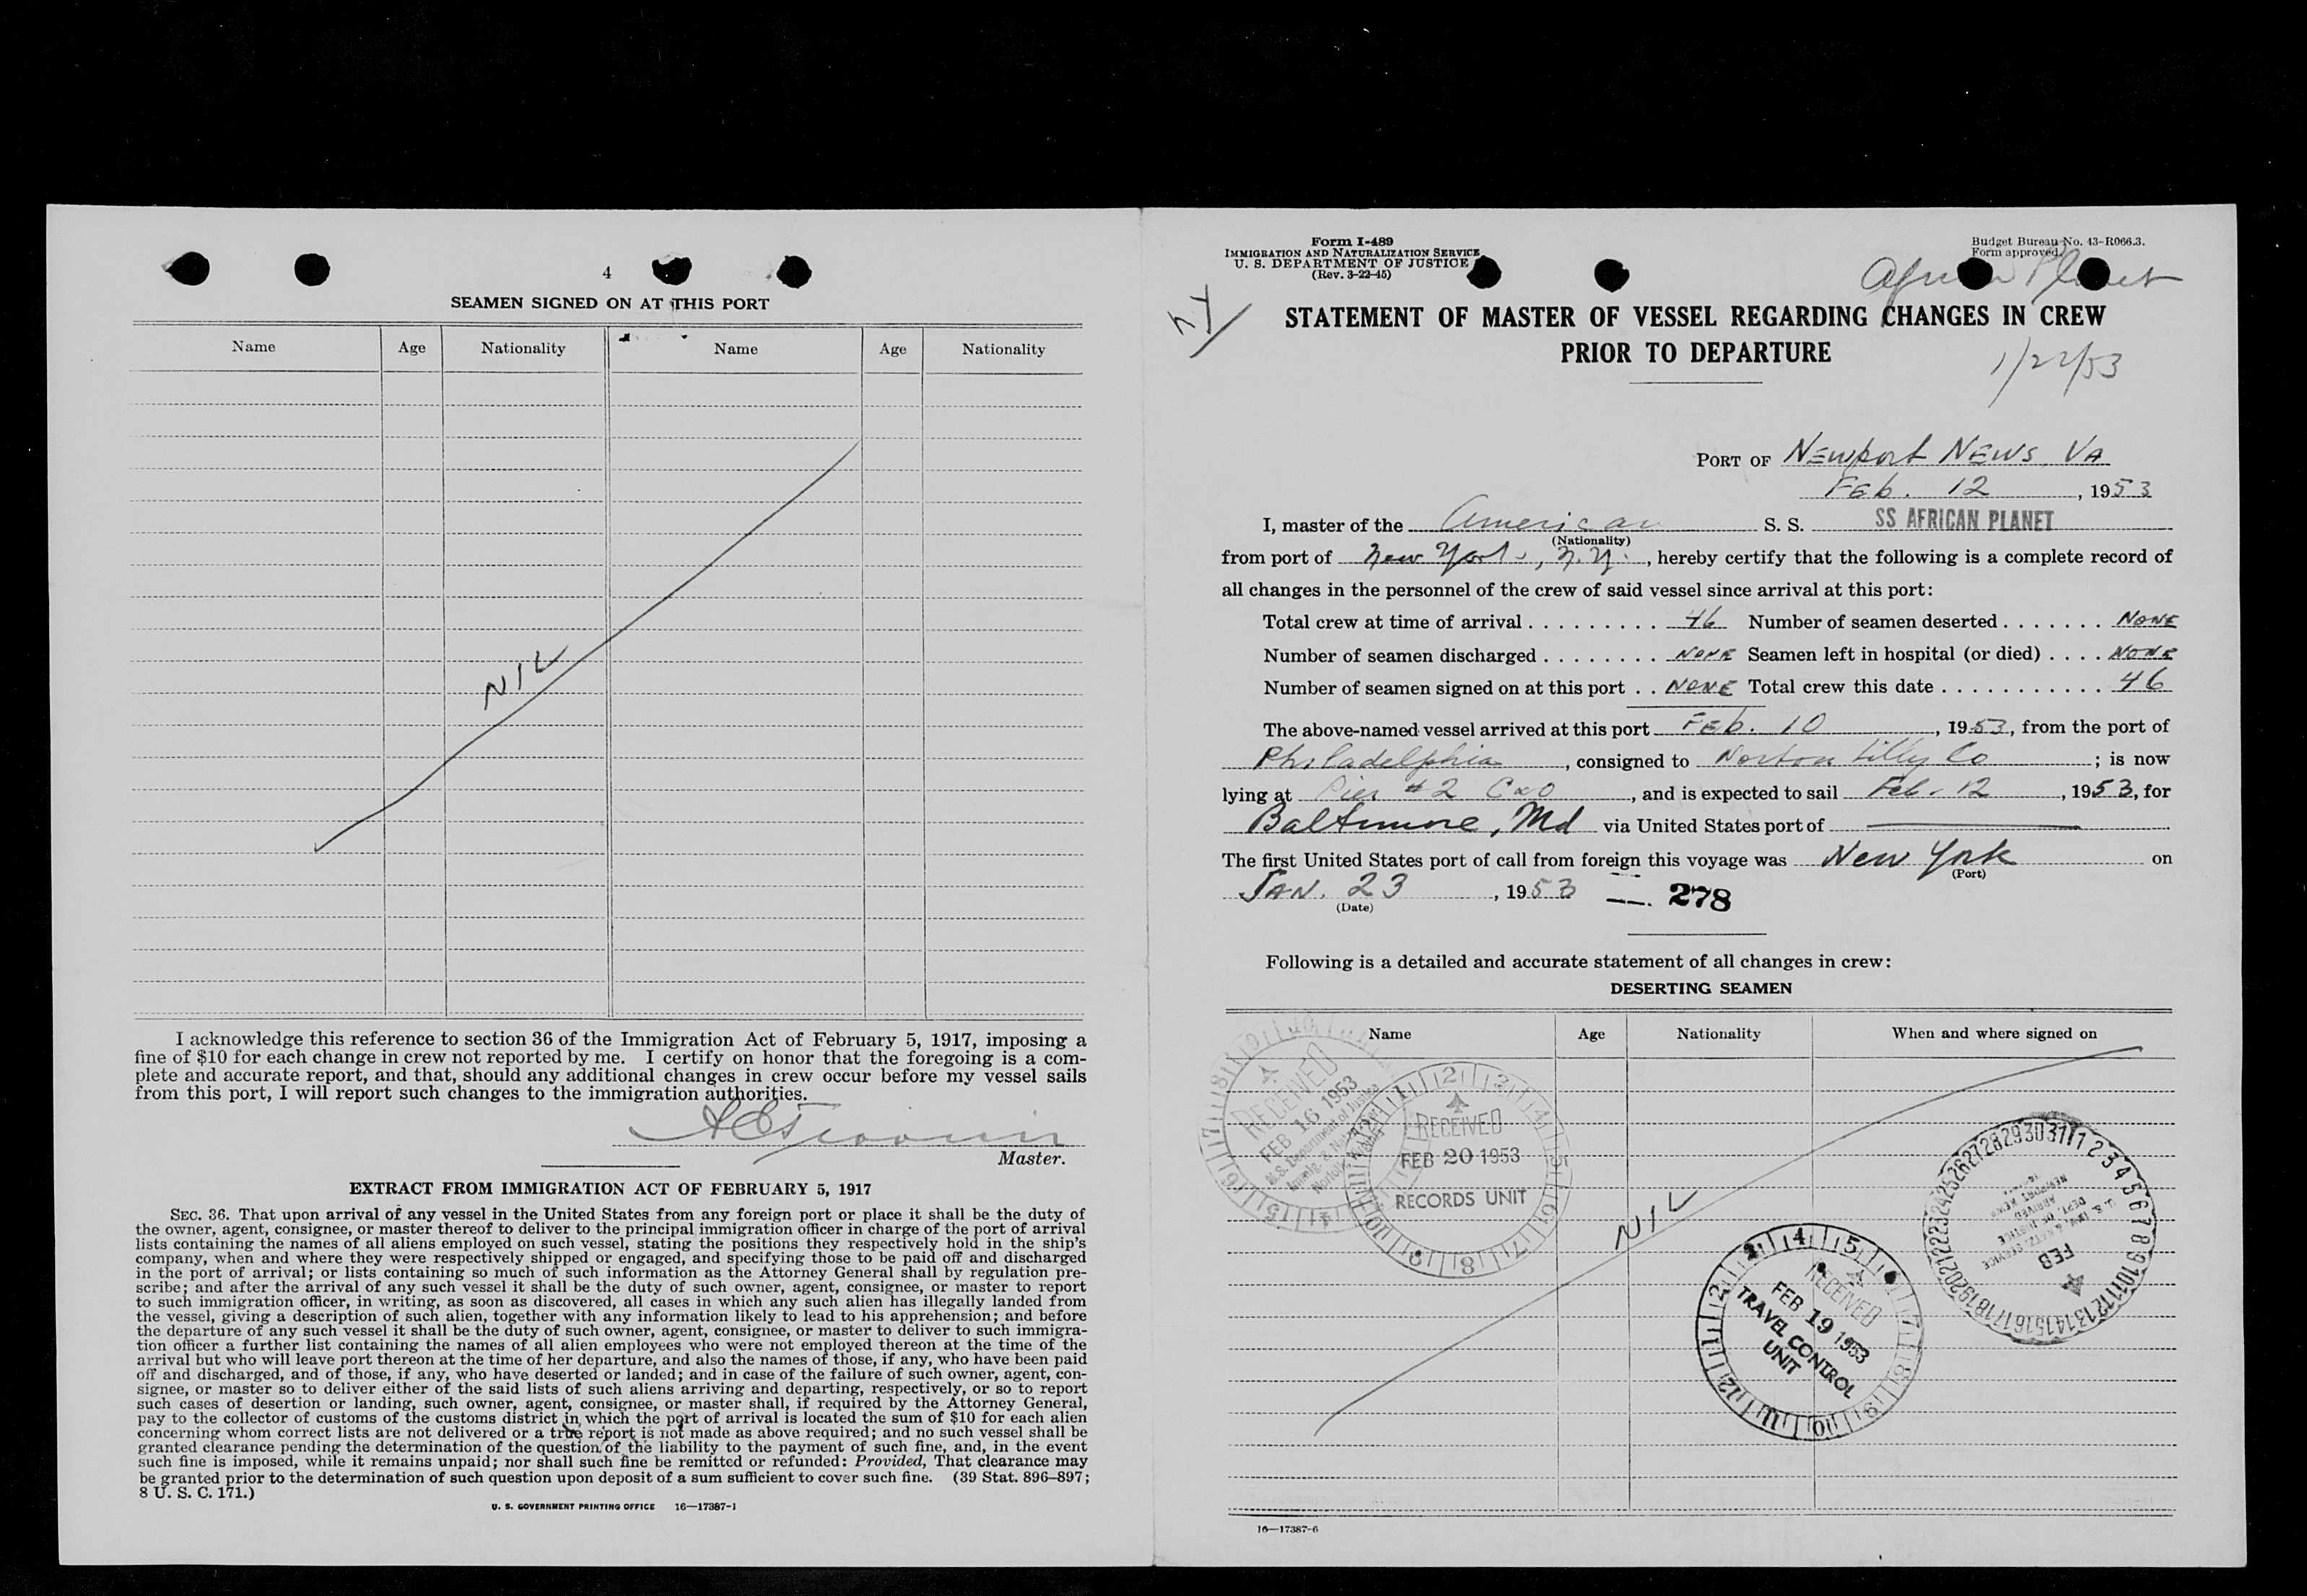 4
SEAMEN SIGNED ON AT THIS PORT
Name Age Nationality Name Age Nationality
NIL
I acknowledge this reference to section 36 of the Immigration Act of February 5, 1917, imposing a
fine of $10 for each change in crew not reported by me. I certify on honor that the foregoing is a com-
plete and accurate report, and that, should any additional changes in crew occur before my vessel sails
from this port, I will report such changes to the immigration authorities.
Master.
EXTRACT FROM IMMIGRATION ACT OF FEBRUARY 5, 1917
SEC. 36. That upon arrival of any vessel in the United States from any foreign port or place it shall be the duty of
the owner, agent, consignee, or master thereof to deliver to the principal immigration officer in charge of the port of arrival
lists containing the names of all aliens employed on such vessel, stating the positions they respectively hold in the ship's
company, when and where they were respectively shipped or engaged, and specifying those to be paid off and discharged
in the port of arrival; or lists containing so much of such information as the Attorney General shall by regulation pre-
scribe; and after the arrival of any such vessel it shall be the duty of such owner, agent, consignee, or master to report
to such immigration officer, in writing, as soon as discovered, all cases in which any such alien has illegally landed from
the vessel, giving a description of such alien, together with any information likely to lead to his apprehension; and before
the departure of any such vessel it shall be the duty of such owner, agent, consignee, or master to deliver to such immigra-
tion officer a further list containing the names of all alien employees who were not employed thereon at the time of the
arrival but who will leave port thereon at the time of her departure, and also the names of those, if any, who have been paid
off and discharged, and of those, if any, who have deserted or landed; and in case of the failure of such owner, agent, con-
signee, or master so to deliver either of the said lists of such aliens arriving and departing, respectively, or so to report
such cases of desertion or landing, such owner, agent, consignee, or master shall, if required by the Attorney General,
pay to the collector of customs of the customs district in which the port of arrival is located the sum of $10 for each alien
concerning whom correct lists are not delivered or a true report is not made as above required; and no such vessel shall be
granted clearance pending the determination of the question of the liability to the payment of such fine, and, in the event
such fine is imposed, while it remains unpaid; nor shall such fine be remitted or refunded: Provided, That clearance may
be granted prior to the determination of such question upon deposit of a sum sufficient to cover such fine. (39 Stat. 896–897;
8 U. S. C. 171.)
U. S. GOVERNMENT PRINTING OFFICE 16—17387-1
Form I-489
IMMIGRATION AND NATURALIZATION SERVICE
U. S. DEPARTMENT OF JUSTICE
(Rev. 3-22-45)
Budget Bureau No. 43-R066.3.
Form approved.
African Planet
STATEMENT OF MASTER OF VESSEL REGARDING CHANGES IN CREW
PRIOR TO DEPARTURE
1/22/53
PORT OF Newport News, Va
Feb. 12, 1953
I, master of the American S. S. SS AFRICAN PLANET
(Nationality)
from port of New York, N.Y., hereby certify that the following is a complete record of
all changes in the personnel of the crew of said vessel since arrival at this port:
Total crew at time of arrival . . . . . . . . . 46 Number of seamen deserted . . . . . . . NONE
Number of seamen discharged . . . . . . . . NONE Seamen left in hospital (or died) . . . . NONE
Number of seamen signed on at this port . . NONE Total crew this date . . . . . . . . . . . 46
The above-named vessel arrived at this port Feb. 10, 1953, from the port of
Philadelphia, consigned to Norton Lilly Co; is now
lying at Pier #2 C&O, and is expected to sail Feb. 12, 1953, for
Baltimore, Md via United States port of
The first United States port of call from foreign this voyage was New York on
(Port)
JAN. 23, 1953 278
(Date)
Following is a detailed and accurate statement of all changes in crew:
DESERTING SEAMEN
Name Age Nationality When and where signed on
RECEIVED
FEB 16 1953
U.S. Department of Justice
RECEIVED
FEB 20 1953
RECORDS UNIT
NIL
RECEIVED
FEB 19 1953
TRAVEL CONTROL
UNIT
FEB
16—17387-6